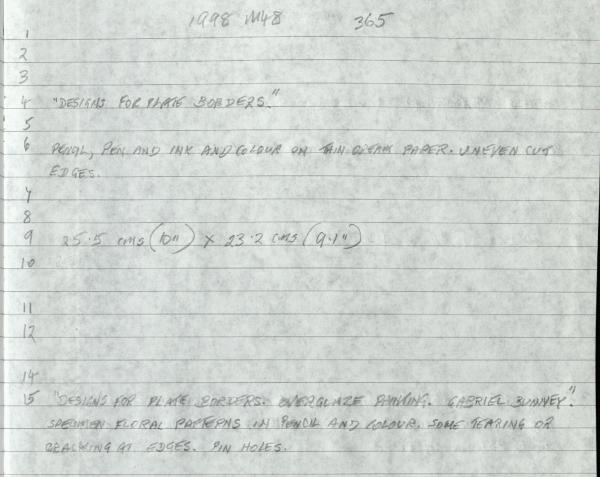 1998 M48 365
1
2
3
4 "DESIGNS FOR PLATE BORDERS."
5
6 PENCIL, PEN AND INK AND COLOUR ON THIN CREAM PAPER. UNEVEN CUT
EDGES.
7
8
9 25.5 cms (10") x 23.2 cms (9.1")
10
11
12
14
15 "DESIGNS FOR PLATE BORDERS. OVERGLAZE PAINTING. GABRIEL BUNNEY".
SPECIMEN FLORAL PATTERNS IN PENCIL AND COLOUR. SOME TEARING OR
CRACKING AT EDGES. PIN HOLES.